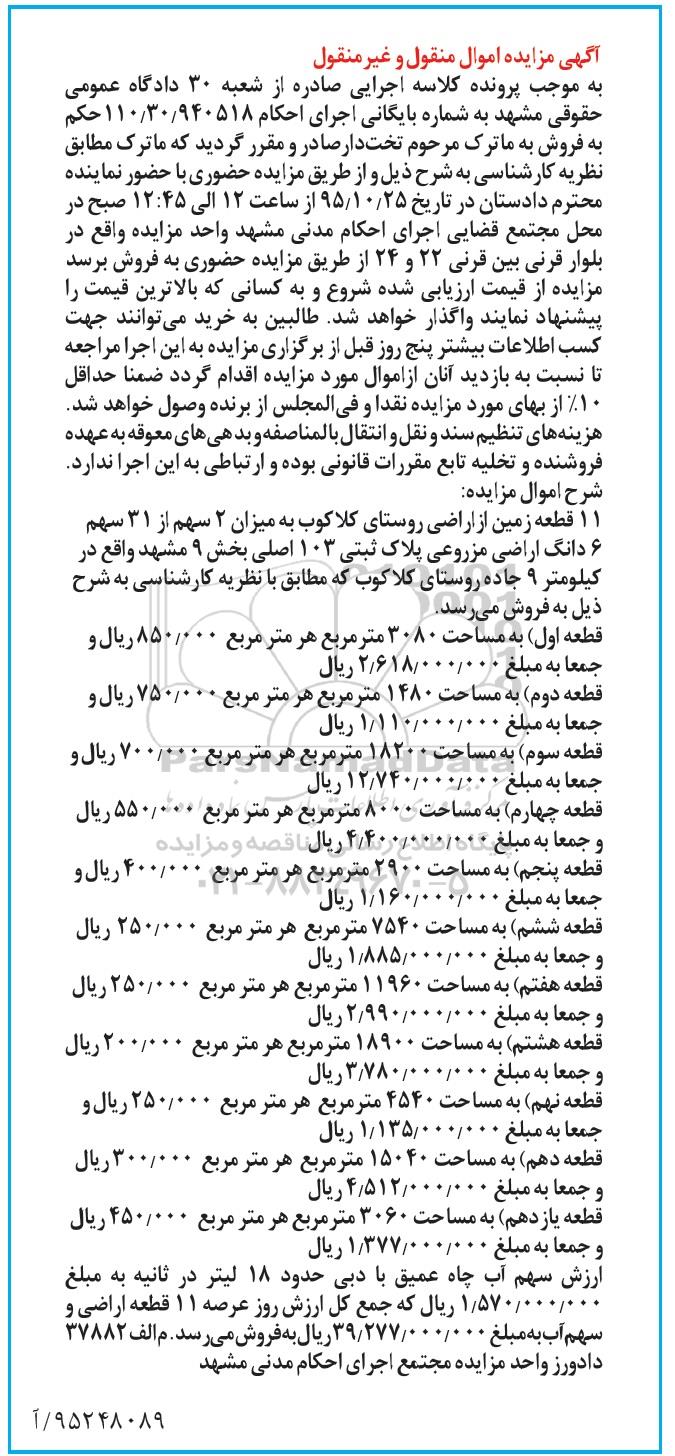 آگهی مزایده اموال منقول و غیرمنقول
به موجب پرونده کلاسه اجرایی صادره از شعبه ۳۰ دادگاه عمومی
حقوقی مشهد به شماره بایگانی اجرای احکام ۱۱۰/۳۰/۹۴۰۵۱۸ حکم
به فروش به ماترک مرحوم تخت‌دار صادر و مقرر گردید که ماترک مطابق
نظریه کارشناسی به شرح ذیل و از طریق مزایده حضوری با حضور نماینده
محترم دادستان در تاریخ ۹۵/۱۰/۲۵ از ساعت ۱۲ الی ۱۲:۴۵ صبح در
محل مجتمع قضایی اجرای احکام مدنی مشهد واحد مزایده واقع در
بلوار قرنی بین قرنی ۲۲ و ۲۴ از طریق مزایده حضوری به فروش برسد
مزایده از قیمت ارزیابی شده شروع و به کسانی که بالاترین قیمت را
پیشنهاد نمایند واگذار خواهد شد. طالبین به خرید می‌توانند جهت
کسب اطلاعات بیشتر پنج روز قبل از برگزاری مزایده به این اجرا مراجعه
تا نسبت به بازدید آنان ازاموال مورد مزایده اقدام گردد ضمنا حداقل
۱۰٪ از بهای مورد مزایده نقدا و فی‌المجلس از برنده وصول خواهد شد.
هزینه‌های تنظیم سند و نقل و انتقال بالمناصفه و بدهی‌های معوقه به عهده
فروشنده و تخلیه تابع مقررات قانونی بوده و ارتباطی به این اجرا ندارد.
شرح اموال مزایده:
۱۱ قطعه زمین از اراضی روستای کلاکوب به میزان ۲ سهم از ۳۱ سهم
۶ دانگ اراضی مزروعی پلاک ثبتی ۱۰۳ اصلی بخش ۹ مشهد واقع در
کیلومتر ۹ جاده روستای کلاکوب که مطابق با نظریه کارشناسی به شرح
ذیل به فروش می‌رسد.
قطعه اول) به مساحت ۳۰۸۰ مترمربع هر متر مربع ۸۵۰/۰۰۰ ریال و
جمعا به مبلغ ۲/۶۱۸/۰۰۰/۰۰۰ ریال
قطعه دوم) به مساحت ۱۴۸۰ مترمربع هر متر مربع ۷۵۰/۰۰۰ ریال و
جمعا به مبلغ ۱/۱۱۰/۰۰۰/۰۰۰ ریال
قطعه سوم) به مساحت ۱۸۲۰۰ مترمربع هر متر مربع ۷۰۰/۰۰۰ ریال و
جمعا به مبلغ ۱۲/۷۴۰/۰۰۰/۰۰۰ ریال
قطعه چهارم) به مساحت ۸۰۰۰ مترمربع هر متر مربع ۵۵۰/۰۰۰ ریال
و جمعا به مبلغ ۴/۴۰۰/۰۰۰/۰۰۰ ریال
قطعه پنجم) به مساحت ۲۹۰۰ مترمربع هر متر مربع ۴۰۰/۰۰۰ ریال و
جمعا به مبلغ ۱/۱۶۰/۰۰۰/۰۰۰ ریال
قطعه ششم) به مساحت ۷۵۴۰ مترمربع هر متر مربع ۲۵۰/۰۰۰ ریال
و جمعا به مبلغ ۱/۸۸۵/۰۰۰/۰۰۰ ریال
قطعه هفتم) به مساحت ۱۱۹۶۰ مترمربع هر متر مربع ۲۵۰/۰۰۰ ریال
و جمعا به مبلغ ۲/۹۹۰/۰۰۰/۰۰۰ ریال
قطعه هشتم) به مساحت ۱۸۹۰۰ مترمربع هر متر مربع ۲۰۰/۰۰۰ ریال
و جمعا به مبلغ ۳/۷۸۰/۰۰۰/۰۰۰ ریال
قطعه نهم) به مساحت ۴۵۴۰ مترمربع هر متر مربع ۲۵۰/۰۰۰ ریال و
جمعا به مبلغ ۱/۱۳۵/۰۰۰/۰۰۰ ریال
قطعه دهم) به مساحت ۱۵۰۴۰ مترمربع هر متر مربع ۳۰۰/۰۰۰ ریال
و جمعا به مبلغ ۴/۵۱۲/۰۰۰/۰۰۰ ریال
قطعه یازدهم) به مساحت ۳۰۶۰ مترمربع هر متر مربع ۴۵۰/۰۰۰ ریال
و جمعا به مبلغ ۱/۳۷۷/۰۰۰/۰۰۰ ریال
ارزش سهم آب چاه عمیق با دبی حدود ۱۸ لیتر در ثانیه به مبلغ
۱/۵۷۰/۰۰۰/۰۰۰ ریال که جمع کل ارزش روز عرصه ۱۱ قطعه اراضی و
سهم آب به مبلغ ۳۹/۲۷۷/۰۰۰/۰۰۰ ریال به فروش می‌رسد. م الف ۳۷۸۸۲
دادورز واحد مزایده مجتمع اجرای احکام مدنی مشهد
۹۵۲۴۸۰۸۹/آ
ParsNamadData
پایگاه اطلاع رسانی مناقصه و مزایده
۰۲۱-۸۸۳۴۹۶۷۰-۵